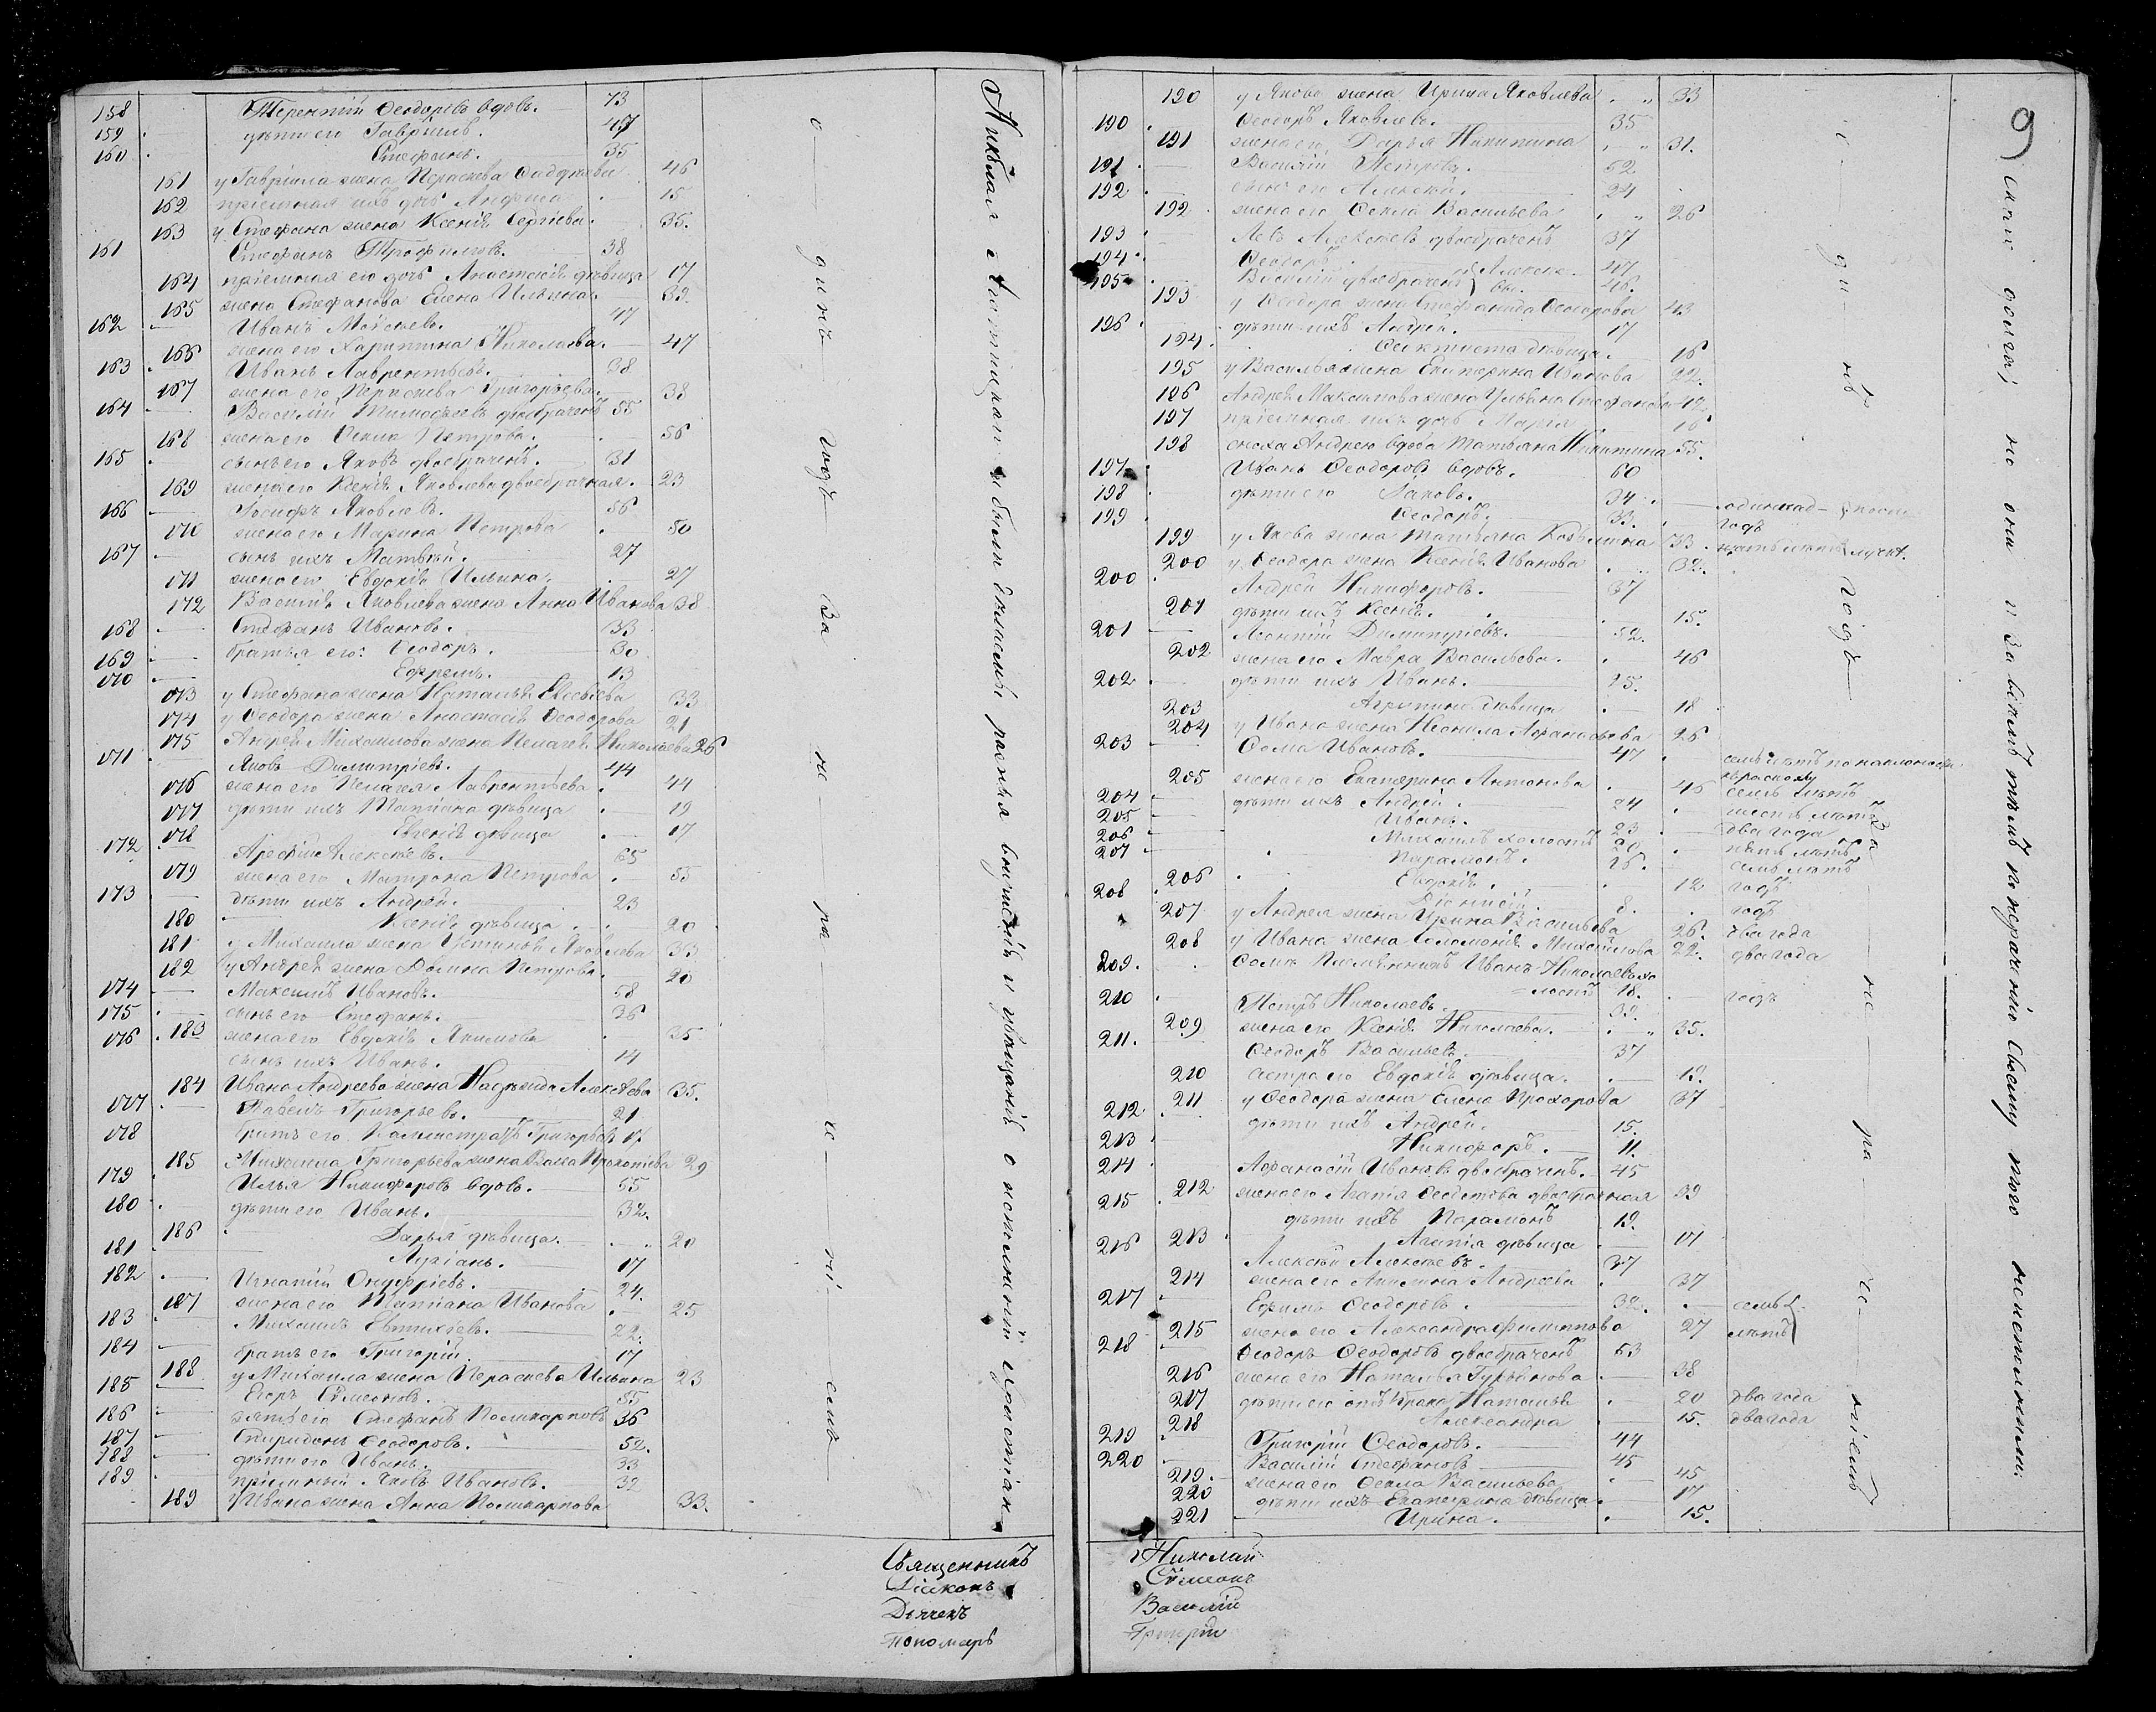 158 Терентій Ѳеодоровъ вдовъ. 73
159 дѣти его Гавріилъ. 47
160 Стефанъ. 35
161 у Гавріила жена Параскева 46
162 пріемная ихъ дочь Анфиса 15
163 у Стефана жена Ксенія Сергіева 35.
161 Стефанъ Трофимовъ. 38
164 пріемная его дочь Анастасія дѣвица 17
165 жена Стефанова Елена Ильина 39.
162 Иванъ Моѵсеевъ. 47
166 жена его Харитина Николаева. 47
163 Иванъ Лаврентьевъ. 38
167 жена его Параскева Григорьева 38
164 Василій Тимофеевъ двоебраченъ 55
168 жена его Ѳекла Петрова. 56
165 сынъ его Яковъ двоебраченъ. 31
169 жена его Ксенія Яковлева двоебрачная. 23
166 Іосифъ Яковлевъ. 56
170 жена его Марина Петрова 50
167 сынъ ихъ Матвѣй. 27
171 жена его Евдокія Ильина. 27
172 Василія Яковлева жена Анна Иванова 38
168 Стефанъ Ивановъ. 33
169 братья его: Ѳеодоръ. 30
170 Ефремъ. 13
173 у Стефана жена Наталья 33
174 у Ѳеодора жена Анастасія Ѳеодорова 21
175 Андрея Михаилова жена Пелагея Николаева 26
171 Яковъ Димитріевъ. 44
176 жена его Пелагея Лаврентьева. 44
177 дѣти ихъ Татіана дѣвица 19
178 Евгенія дѣвица 17
172 Арефій Алексѣевъ. 65
179 жена его Матрона Петрова 55
173 дѣти ихъ Андрей. 23
180 Ксенія дѣвица 20
181 у Михаила жена Устинья Яковлева 33
182 у Андрея жена Домна Петрова. 20
174 Максимъ Ивановъ. 58
175 сынъ его Стефанъ. 36
183 жена его Евдокія Якимова 35
176 сынъ ихъ Иванъ. 14
184 Ивана Андреева жена Надежда Алексѣева 35.
177 Павелъ Григорьевъ. 21
178 братъ его Каллистратъ Григорьевъ 17
185 Михаила Григорьева жена Васса Прокопіева 29
179 Илья Никифоровъ вдовъ. 55
180 дѣти его Иванъ. 32.
186 Дарья дѣвица. 20
181 Лукіанъ. 17
182 Игнатій Онуфріевъ. 24.
187 жена его Татіана Иванова 25
183 Михаилъ Евтихіевъ. 22.
184 братъ его Григорій 17
188 у Михаила жена Параскева Ильина 23
185 Егоръ Сѵмеоновъ. 55
186 зять его Стефанъ Поликарповъ 36
187 Спиридонъ Ѳеодоровъ. 52.
188 дѣти его Иванъ. 33
189 пріемный Яковъ Ивановъ. 32
189 у Ивана жена Анна Поликарпова 33.
одинъ годъ За не ра че ні емъ
Священникъ
Діаконъ
Дьячекъ
Пономарь
190 у Якова жена Ирина Яковлева 33
190 Ѳеодоръ Яковлевъ. 35
191 жена его Дарья Никитина 31.
191 Василій Петровъ. 52
192 сынъ его Алексѣй. 24
192 жена его Ѳекла Васильева 26
193 Левъ Алексѣевъ двоебраченъ 37
194 Ѳеодоръ 47
195 Василій двоебраченъ Алексѣе- вы. 46.
193 у Ѳеодора жена Стефанида Ѳеодорова 43
196 дѣти ихъ Андрей. 17
194 Ѳеоктиста дѣвица. 16
195 у Василья жена Екатерина Иванова 22.
196 Андрея Максимова жена Ульяна Стефанова 42
197 пріемная ихъ дочь Марія 16
198 сноха Андрею вдова Татьана Никитина 55.
197 Иванъ Ѳеодоровъ вдовъ. 60
198 дѣти его Іаковъ. 34 одиннад-
199 Ѳеодоръ. 33. годъ
199 у Якова жена Татьана Козьмина 33. пять лѣтъ
200 у Ѳеодора жена Ксенія Иванова 32.
200 Андрей Никифоровъ. 37
201 дѣти ихъ Ксенія. 15.
201 Леонтій Димитріевъ. 52.
202 жена его Мавра Васильева. 46
202 дѣти ихъ Иванъ. 25.
203 Агрипина дѣвица 18
204 у Ивана жена Неонила Афанасьева 26
203 Ѳома Ивановъ. 47 семь лѣтъ по наклонности къ расколу
205 жена его Екатерина Антонова 46 семь лѣтъ
204 дѣти ихъ Андрей. 24 шесть лѣтъ
205 Иванъ. 23 два года
206 Михаилъ холостъ 20 пять лѣтъ
207 Парамонъ. 16. семь лѣтъ
206 Евдокія. 12 годъ
208 Діонисій. 8. годъ
207 у Андрея жена Ирина Васильева 26. два года
208 у Ивана жена Соломонія Михайлова 22. два года
209. Ѳомѣ племянникъ Иванъ Николаевъ хо-
лостъ 18. годъ
210 Петръ Николаевъ. 39.
209 жена его Ксенія Николаева. 35.
211. Ѳеодоръ Васильевъ. 37
210 сестра его Евдокія дѣвица. 19.
211 у Ѳеодора жена Елена Прохорова 37
212 дѣти ихъ Андрей. 15.
213 Никифоръ. 11.
214 Афанасій Ивановъ двоебраченъ. 45
212 жена его Агапія Ѳеодотова двоебрачная 39
215 дѣти ихъ Парамонъ 19.
213 Агапія дѣвица 17
216 Алексѣй Алексѣевъ. 37
214 жена его Акилина Андреева 37
217 Ефимъ Ѳеодоровъ. 32. семь
215 жена его Александра Филиппова 27 лѣтъ
218 Ѳеодоръ Ѳеодоровъ двоебраченъ 53
216 жена его Наталья Гурьянова 38
217 дѣти его отъ 1 брака Наталія 20 два года
218 Александра 15. два года
219 Григорій Ѳеодоровъ. 44
220 Василій Стефановъ 45
219. жена его Ѳекла Васильева 45
220 дѣти ихъ Екатерина дѣвица. 17
221 Ирина. 15.
о ди нъ годъ За не ра че ніемъ
Николай
Сѵмеонъ
Василій
Григорій
9)